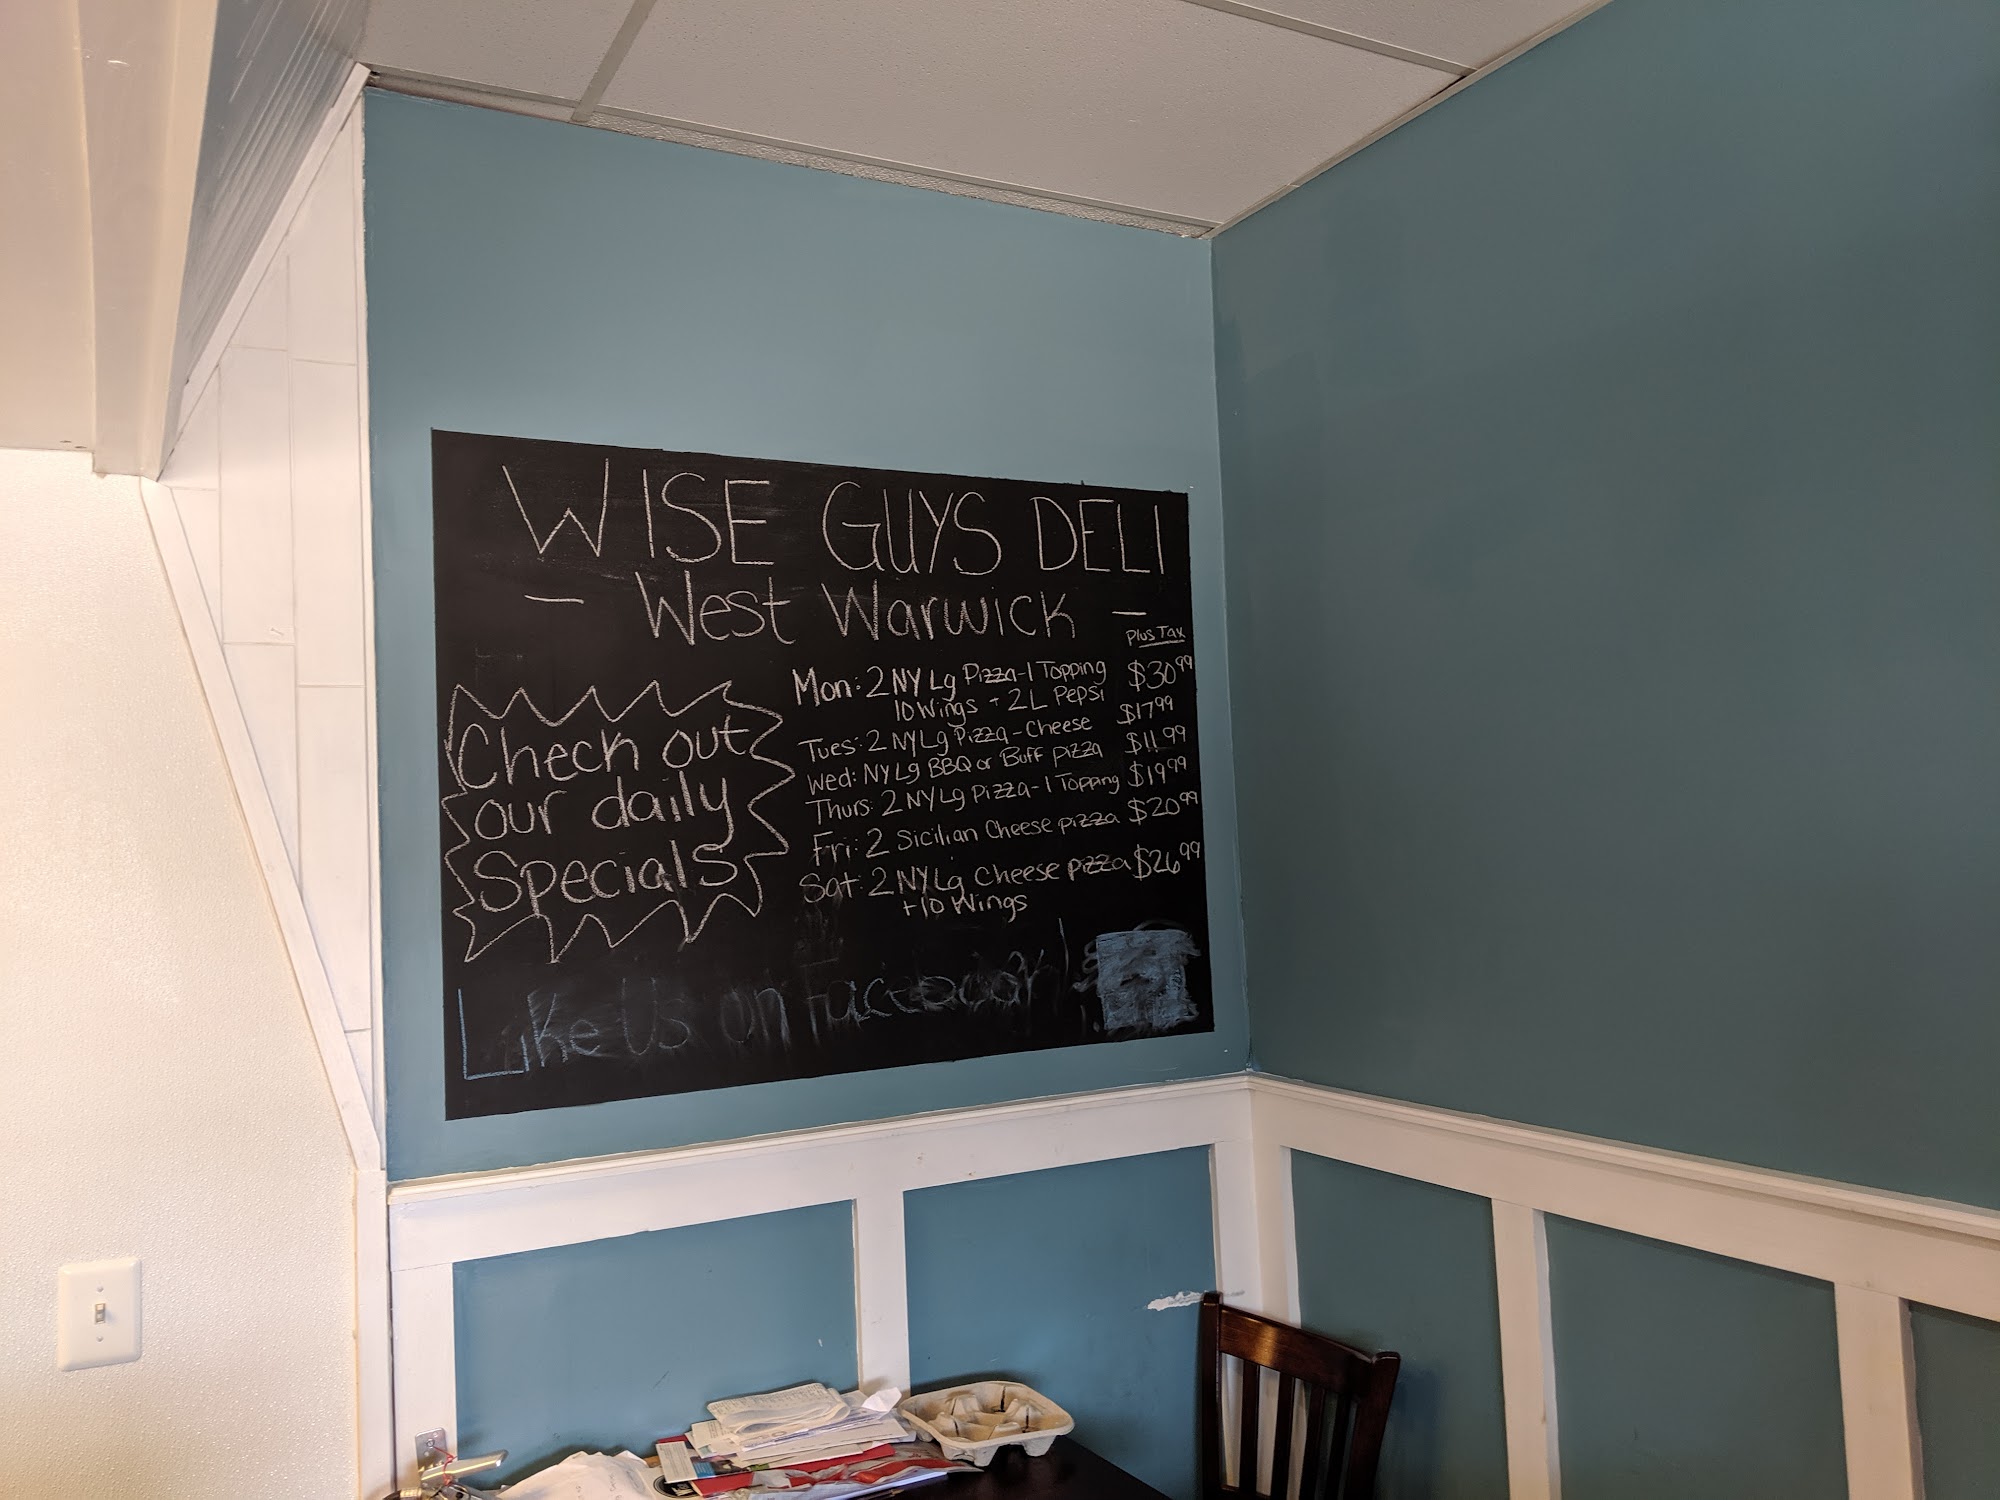 WISE GUYS DELI
- West Warwick -
Plus Tax
Check out
our daily
Specials
Mon: 2 NY Lg Pizza-1 Topping $30.99
10 Wings + 2L Pepsi
Tues: 2 NY Lg Pizza-Cheese $17.99
Wed: NY Lg BBQ or Buff pizza $11.99
Thurs: 2 NY Lg Pizza-1 Topping $19.99
Fri: 2 Sicilian Cheese pizza $20.99
Sat: 2 NY Lg Cheese pizza $26.99
+10 Wings
Like Us on Facebook!